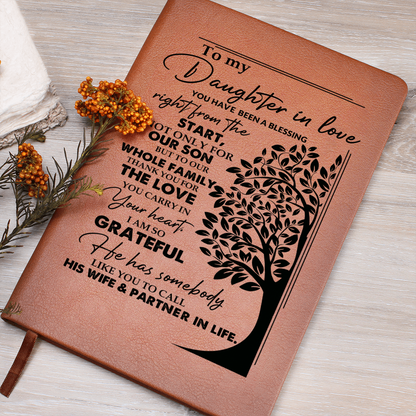 To my
Daughter in love
YOU HAVE BEEN A BLESSING
right from the
START
NOT ONLY FOR
OUR SON
BUT TO OUR
WHOLE FAMILY
THANK YOU FOR
THE LOVE
YOU CARRY IN
Your heart
I AM SO
GRATEFUL
He has somebody
LIKE YOU TO CALL
HIS WIFE & PARTNER IN LIFE.